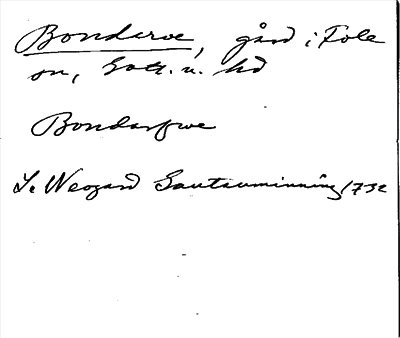 Bonderve, gård i Fole
sn, Gotl. n. hd
Bondarfwe
L. Neogard Gautauminning 1732